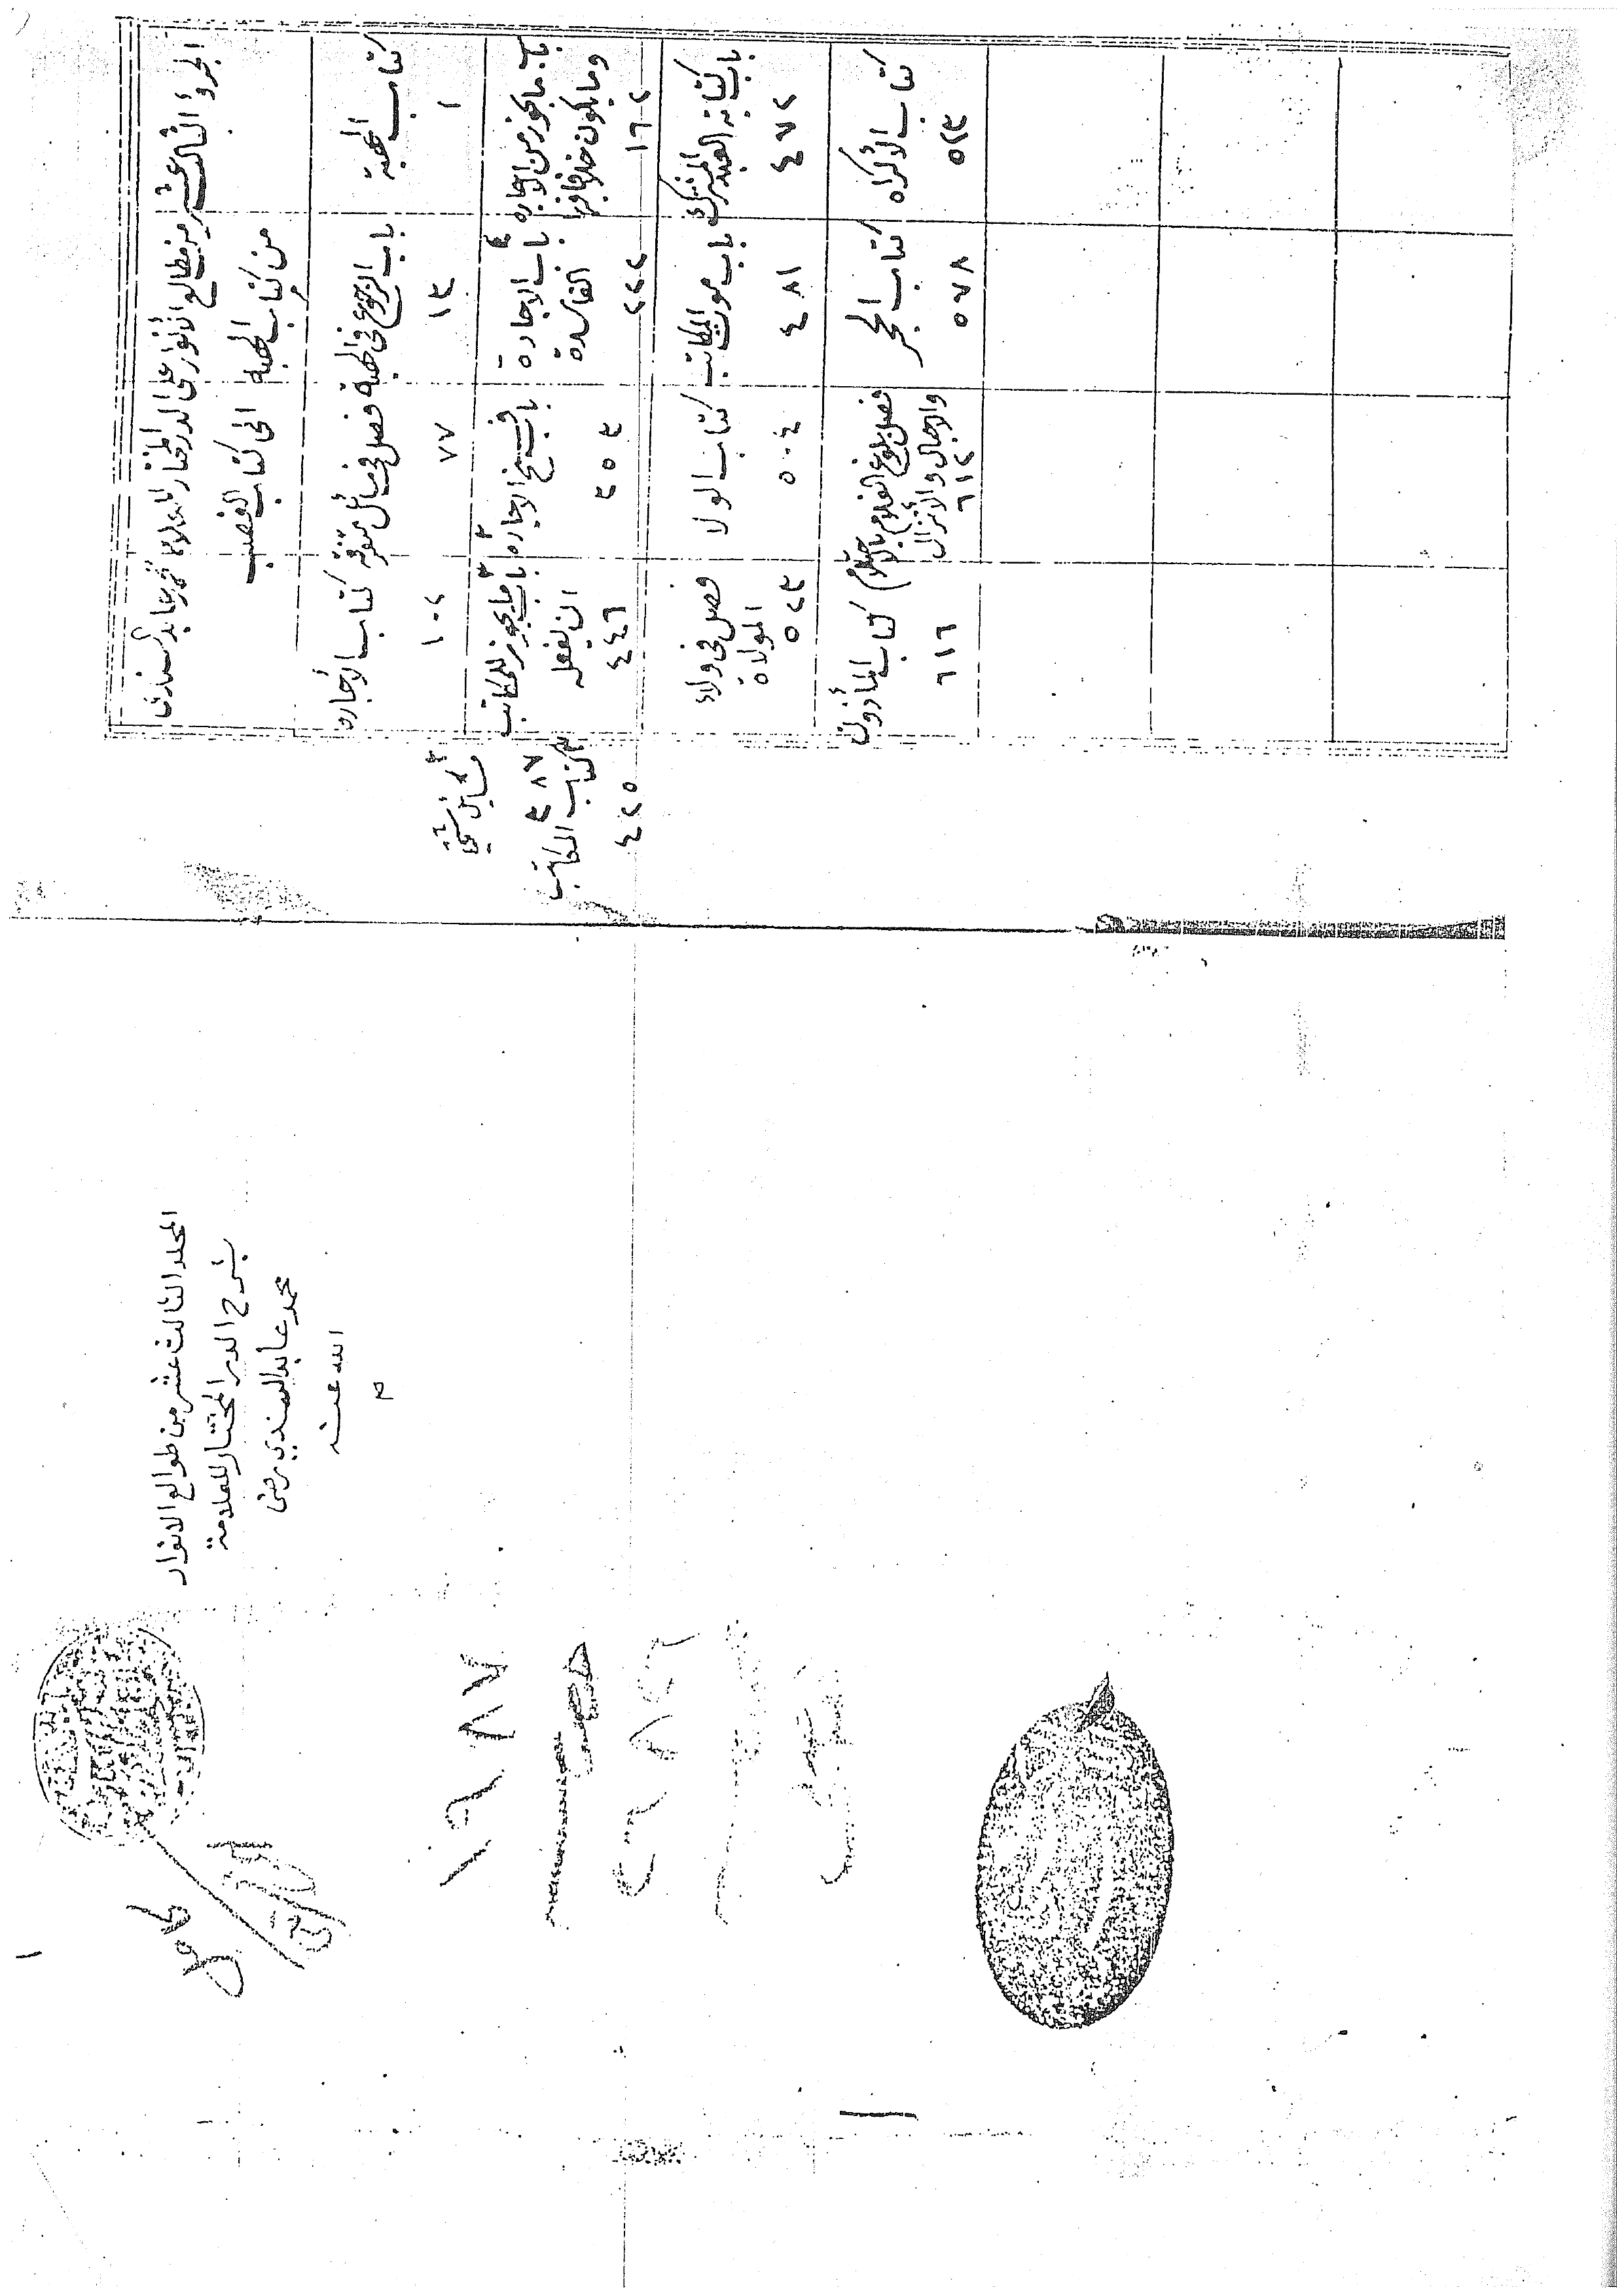 الجزؤ الثالث عشر من طالع الأنوار على الدر المختار للعلامة محمد عابد السندى
من كتاب الهبة الى كتاب الغصب
كتاب الهبة
١
باب الرجوع فى الهبة
١٣
فصل فى مسائل متفرقة
٧٧
كتاب الأجارة
١٠٢
باب ما يجوز من الاجارة
وما يكون خلافا فيها
١٦٢
باب الاجارة
الفاسدة
٢٢٢
باب فسخ الاجارة
٣٥٣
مسائل شتى
٣٨٧
كتاب المكاتب
٤٢٥
باب ما يجوز للمكاتب
ان يفعله
٤٤٦
باب كتابة العبد المشترك
٤٧٢
باب موت المكاتب
٤٨١
كتاب الولا
٥٠٤
فصل فى ولاء
المولاة
٥٢٣
كتاب الأكراه
٥٢٣
كتاب الحجر
٥٧٨
فصل بلوغ الغلام بالاحتلام
والاحبال والأنزال
٦١٢
كتاب المأذون
٦١٦
المجلد الثالث عشر من طوالع الانوار
بشرح الدر المختار للعلامة
محمد عابد السندي رضى
الله عنه
م
١٩٨٧